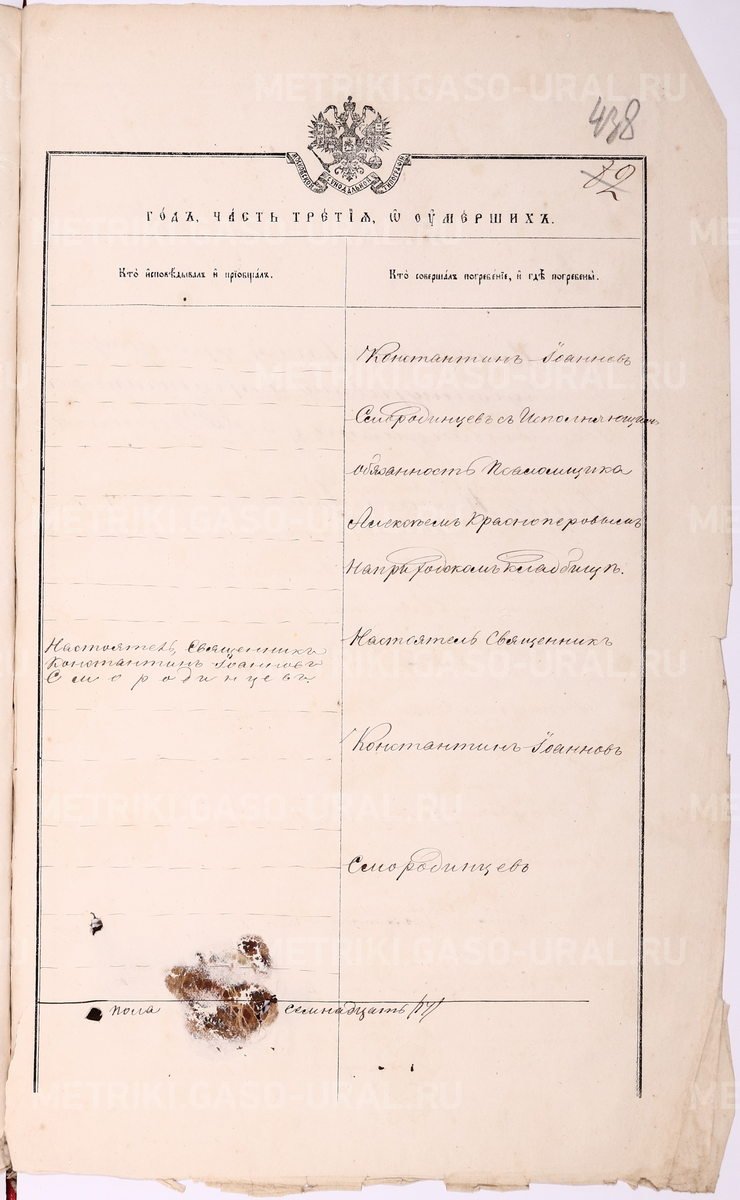 METRIKI.GASO-URAL.RU
438
МОСКОВСКОЙ СѴНОДАЛЬНОЙ ТИПОГРАФІИ
ГО́ДЪ, ЧА́СТЬ ТРЕ́ТІѦ, Ѡ ОУ҆МЕ́РШИХЪ.
Кто̀ и҆сповѣ́дывалъ и҆ прїѡбща́лъ.
Кто̀ соверша́лъ погребе́нїе, и҆ гдѣ̀ погребены̀.
Константинъ Іоанновъ
Смородинцевъ съ Исполняющимъ
обязанность Псаломщика
Алексѣемъ Красноперовымъ
На приходскомъ кладбищѣ.
Настоятель, Священникъ
Константинъ Іоанновъ
Смородинцевъ.
Настоятель Священникъ
Константинъ Іоанновъ
Смородинцевъ
пола
семнадцать /17/